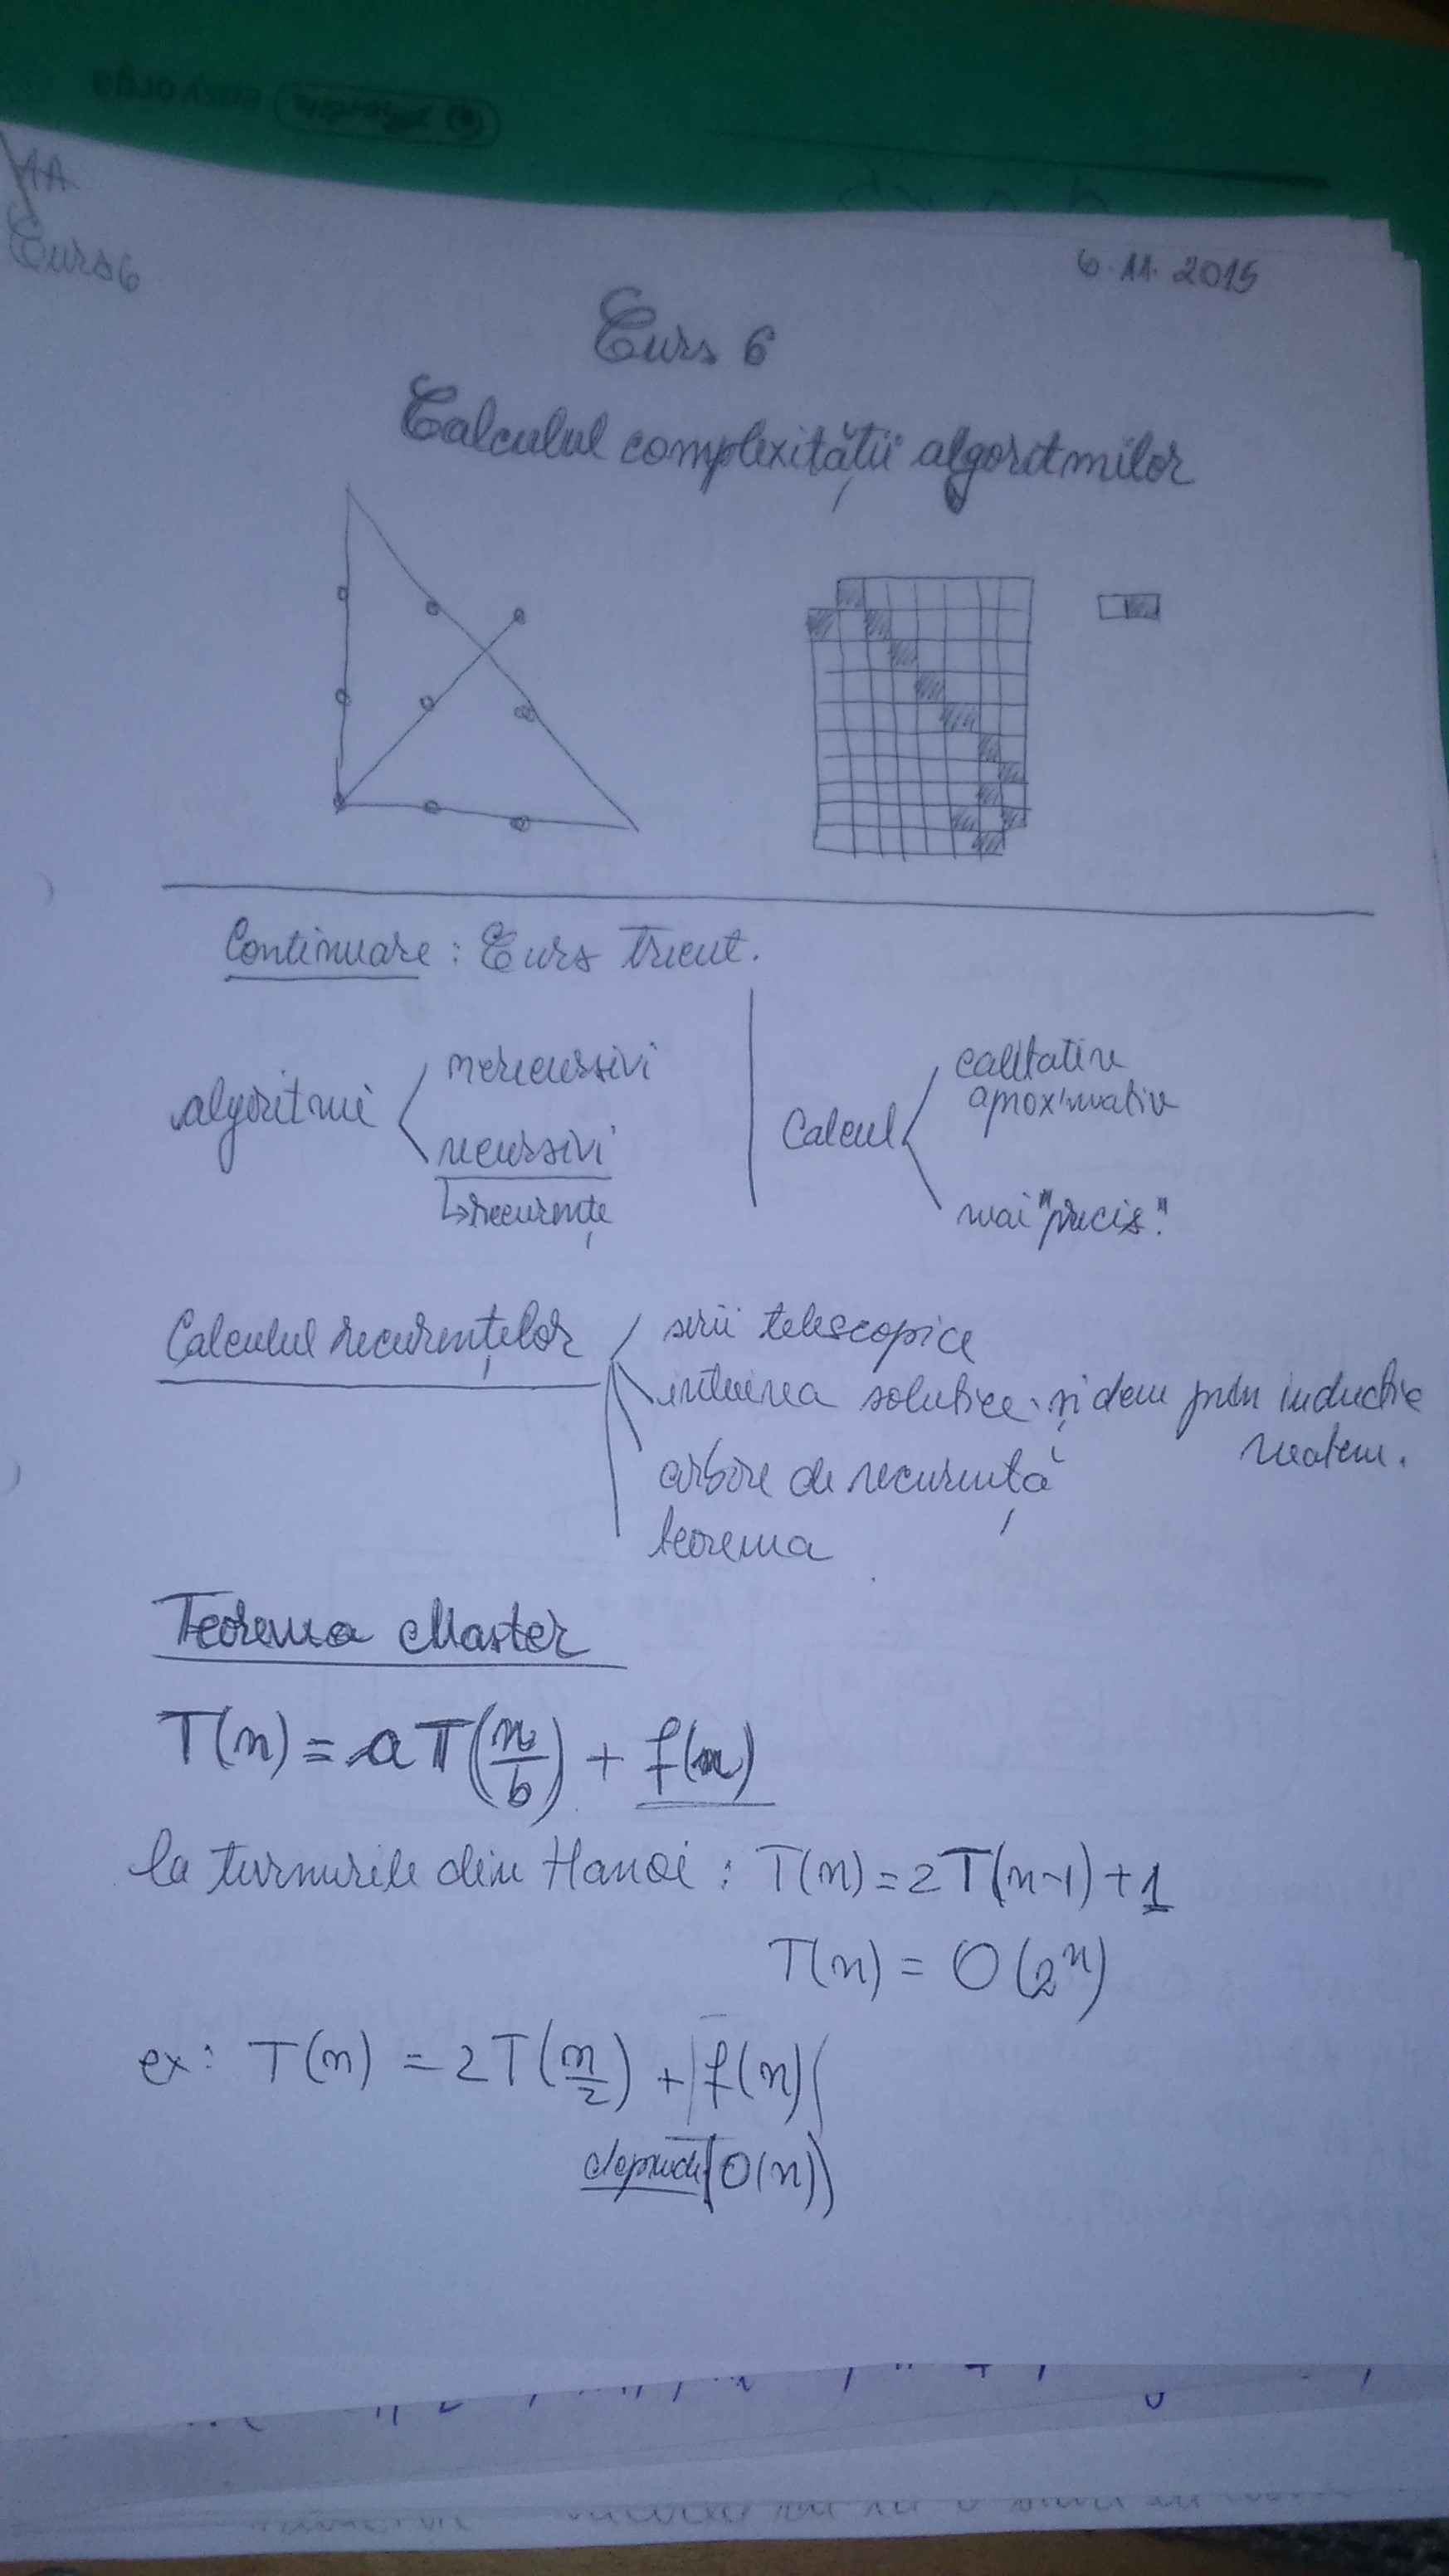 easy orga
AA
Curs 6
6.11.2015
Curs 6
Calculul complexității algoritmilor
Continuare: Curs trecut.
algoritmi
nerecursivi
recursivi
↳ recurențe
Calcul
calitativ
aproximativ
mai "precis".
Calculul recurențelor
serii telescopice
intuirea soluției și dem prin inducție
matem.
arbore de recurență
teorema
Teorema Master
T(n) = aT(n/b) + f(n)
la turnurile din Hanoi: T(n) = 2T(n-1) + 1
T(n) = O(2ⁿ)
ex: T(n) = 2T(n/2) + f(n)
depinde O(n)